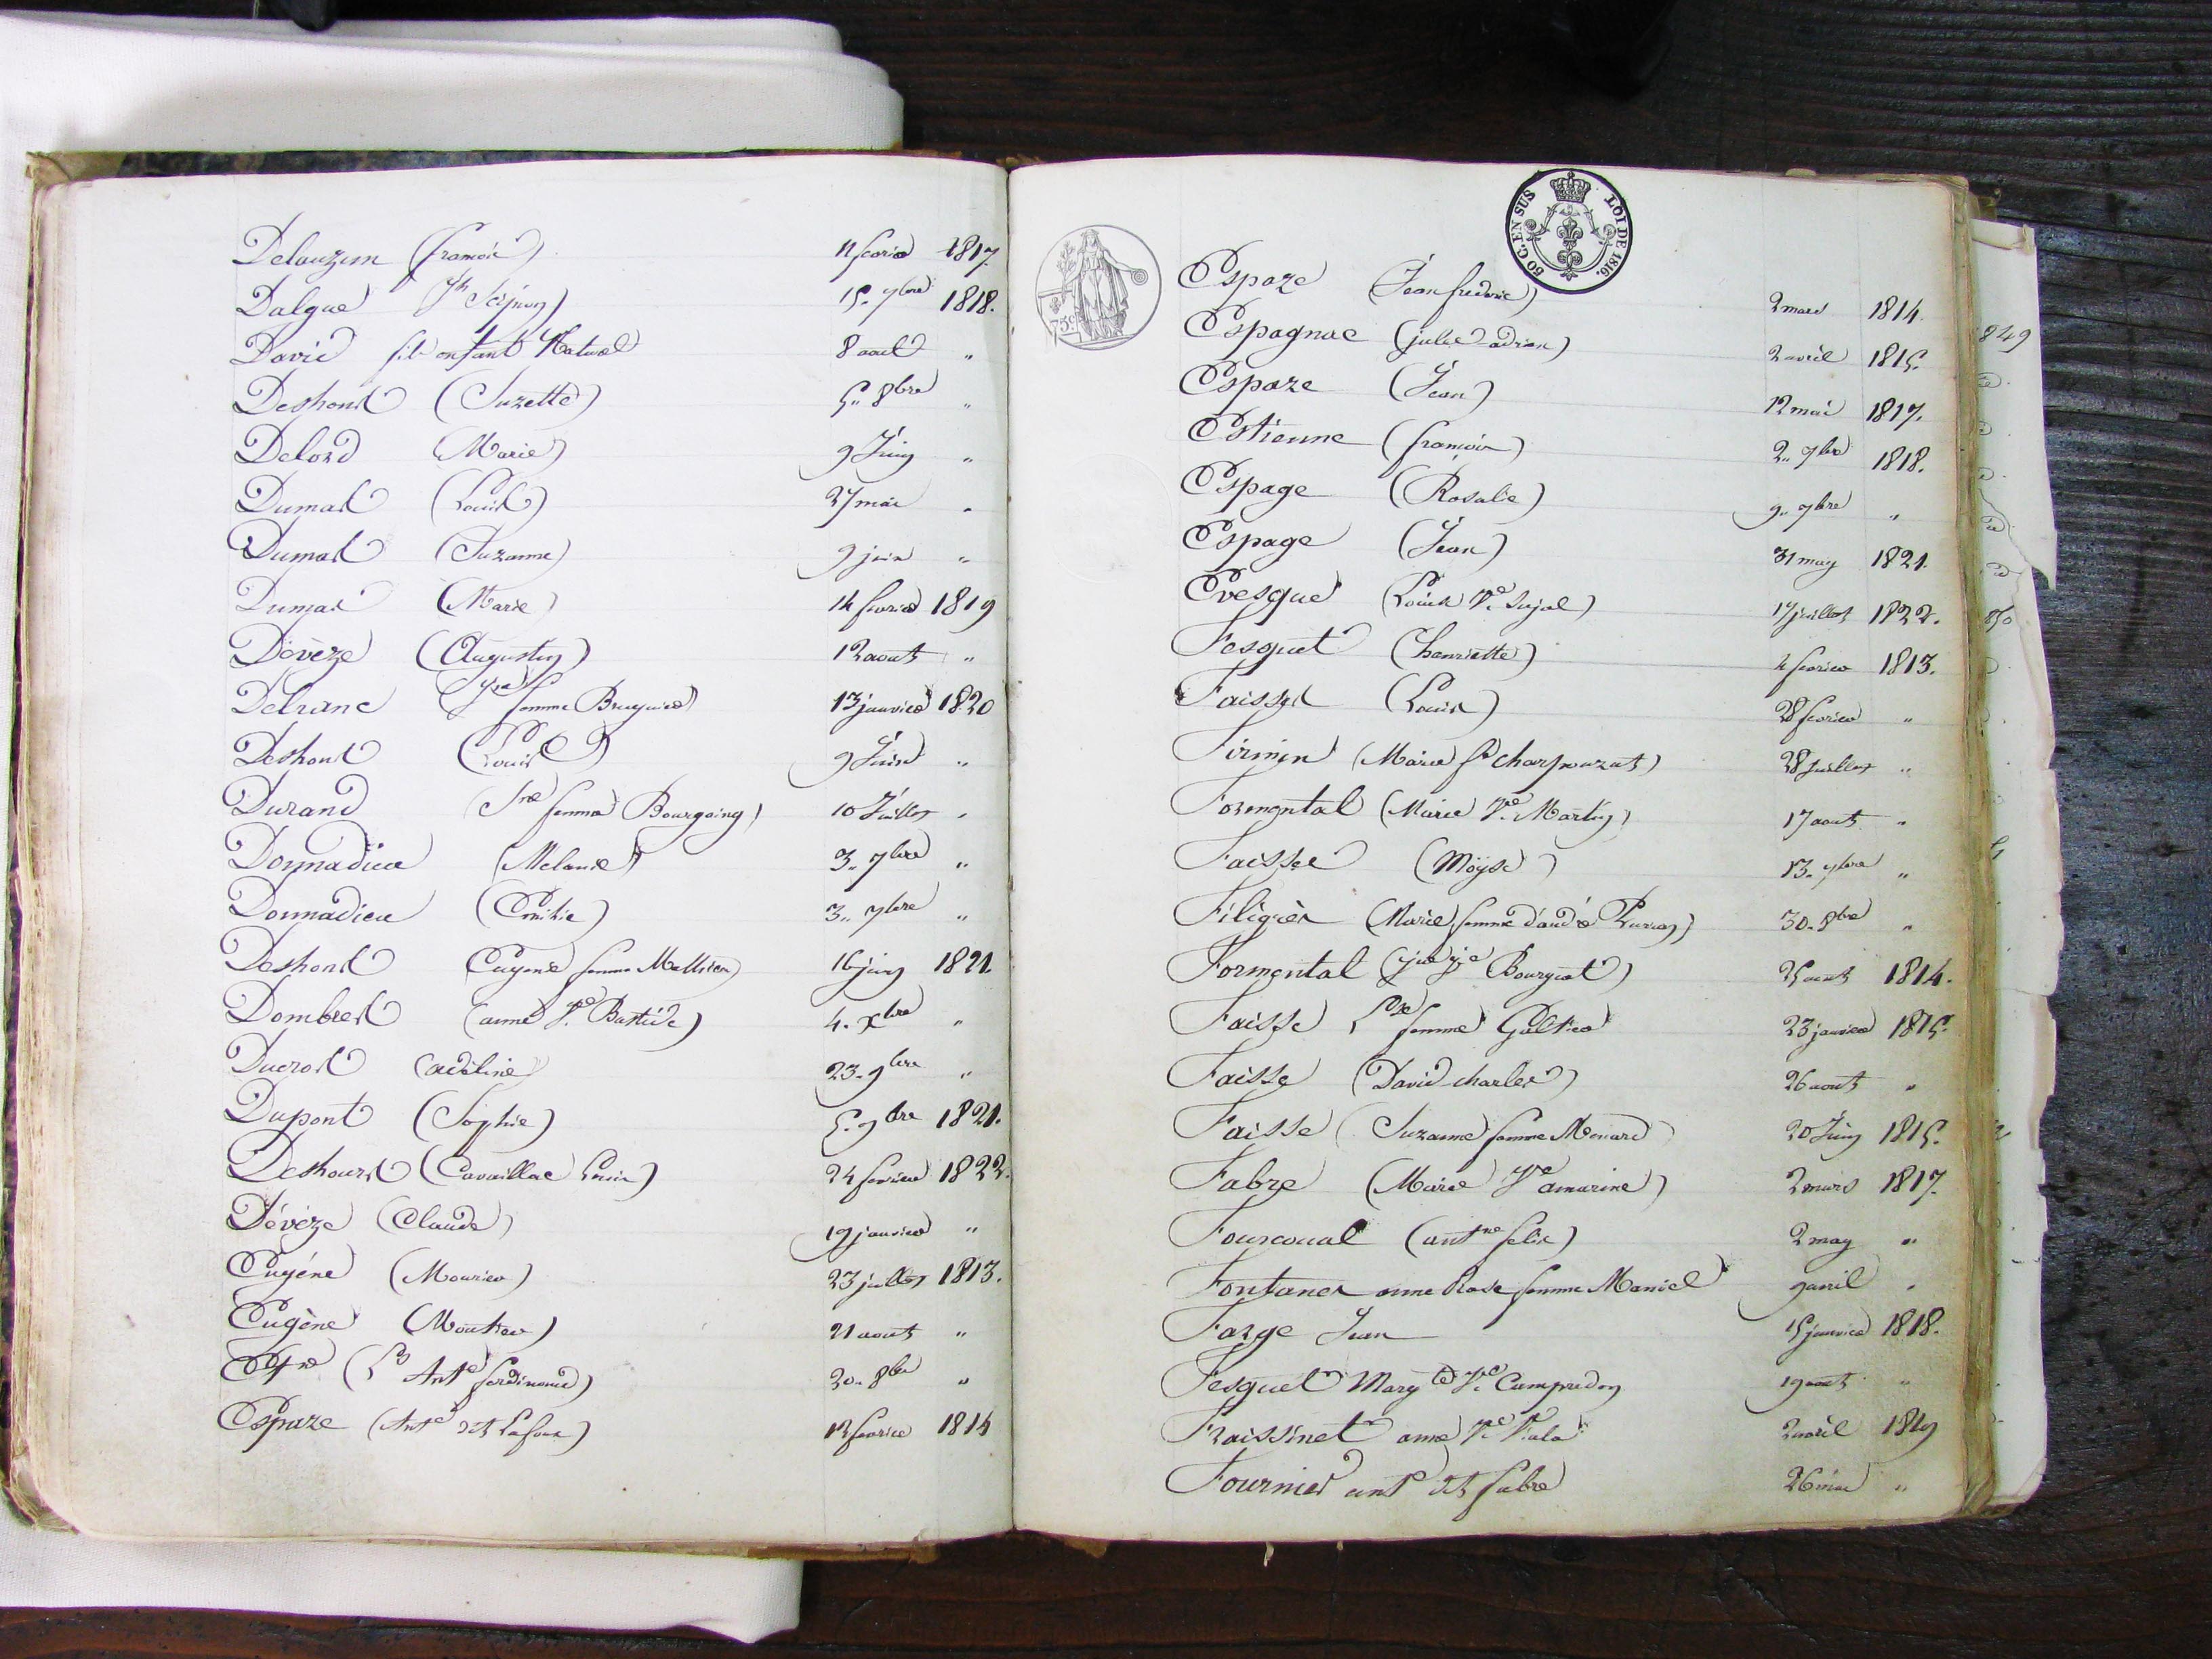 Delauzun (francois) 11 fevrier 1817.
Dalgue Jh Scipion) 15. 7bre 1818.
David fils enfant Naturel 8 aout "
Deshons (Suzette) 5. 8bre "
Delord (Marie) 9 Juin "
Dumas (Louis) 27 mai "
Dumas (Suzanne) 9 juin "
Dumas (Marie) 14 fevrier 1819
Dévèze (Augustin) 12 aout "
Delranc femme Bruguier) 13 janvier 1820
Deshons (Louis) 9 Juin "
Durand femme Bourgoing) 10 Juillet "
Donnadieu (Mélanie) 3. 7bre "
Donnadieu (Emilie) 3. 7bre "
Deshons Eugenie femme Mathieu) 16 juin 1821.
Dombres (anne Ve Bastide) 4. Xbre "
Ducros (adeline) 23. 9bre "
Dupont (Sophie) 5. 9bre 1821.
Deshours (Cavaillac Louis) 24 fevrier 1822.
Dévéze (Claude) 19 janvier "
Eugéne (Mourier) 23 juillet 1813.
Eugène (Moutier) 21 aout "
ferdinand) 20. 8bre "
Espaze (Ante dit Lafoux) 12 fevrier 1814
50 C. EN SUS LOI DE 1816.
75c
Espaze (Jean frederic) 2 mars 1814.
Espagnac (julie adrien) 2 avril 1815.
Espaze (Jean) 12 mai 1817.
Estienne (francois) 2. 7bre 1818.
Espage (Rosalie) 9. 7bre "
Espage (Jean) 31 may 1821.
Evesque (Louise Ve Sujol) 17 juillet 1822.
Fesquet (henriette) 4 fevrier 1813.
Faisses (Louis) 28 fevrier "
Firmin (Marie fe charpouzat) 28 Juillet "
Formental (Marie Ve Martin) 17 aout "
Faisse (Moÿse) 13. 7bre "
Filiquier (Marie femme d'andré Puzin) 30. 8bre "
Formental Bourguet) 25 aout 1814.
Faisse femme Galtier 23 janvier 1815.
Faisse (David charles) 26 aout "
Faisse (Suzanne femme Menard) 20 Juin 1815.
Fabre (Marie Ve amarine) 2 mars 1817.
Fourcoual (antne felix) 2 may "
Fontanes anne Rose femme Maniel 9 avril "
Farge Jean 15 janvier 1818.
Fesquet Margte Ve Campredon 19 aout "
Fraissinet anne Ve Viala 2 avril 1819
Fournier ante dit fabre 26 mai "
849
850